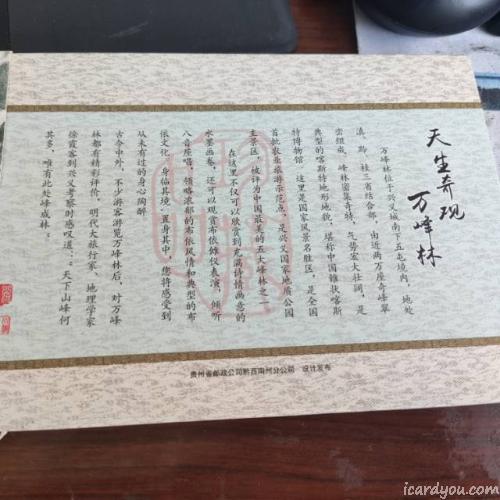 天生奔现
万峰林
万峰林位于兴义城南下五屯境内，地处
滇、黔、桂三省结部，由近两万座奇峰翠
峦组成，峰林密集奇特，气势宏大壮阔，是
典型的喀斯特地形地貌，堪称中国锥状喀斯
特博物馆，这里是国家风景名胜区，是全国
首批农业旅游示范点，是兴义国家地质公园
主景区，被评为中国最美的五大峰林之一。
在这里不仅可以欣赏到充满诗情画意的
水墨画卷，还可以观赏布依傩仪表演，倾听
八音座唱，领略浓郁的布依风情和典型的布
依文化。身临其境，置身其中，您将感受到
从未有过的身心陶醉。
古今中外，不少游客游览万峰林后，对万峰
林都有精彩评价，明代大旅行家、地理学家
徐霞客到兴义考察时感叹道：“天下山峰何
其多，唯有此处峰成林。”
贵州省邮政公司黔西南州分公司 设计发布
icardyou.com